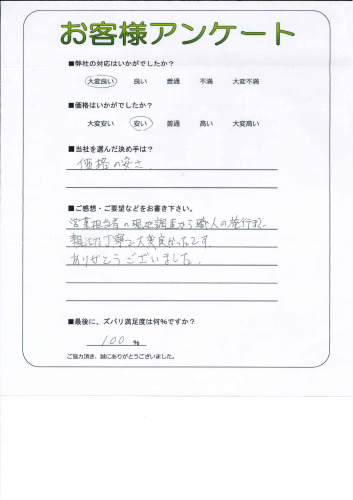 お客様アンケート
■弊社の対応はいかがでしたか？
大変良い 良い 普通 不満 大変不満
■価格はいかがでしたか？
大変安い 安い 普通 高い 大変高い
■当社を選んだ決め手は？
価格の安さ.
■ご感想・ご要望などをお書き下さい。
営業担当者の現地調査から職人の施行まで
親切丁寧で大変良かったです.
ありがとうございました.
■最後に、ズバリ満足度は何%ですか？
100 %
ご協力頂き、誠にありがとうございました。